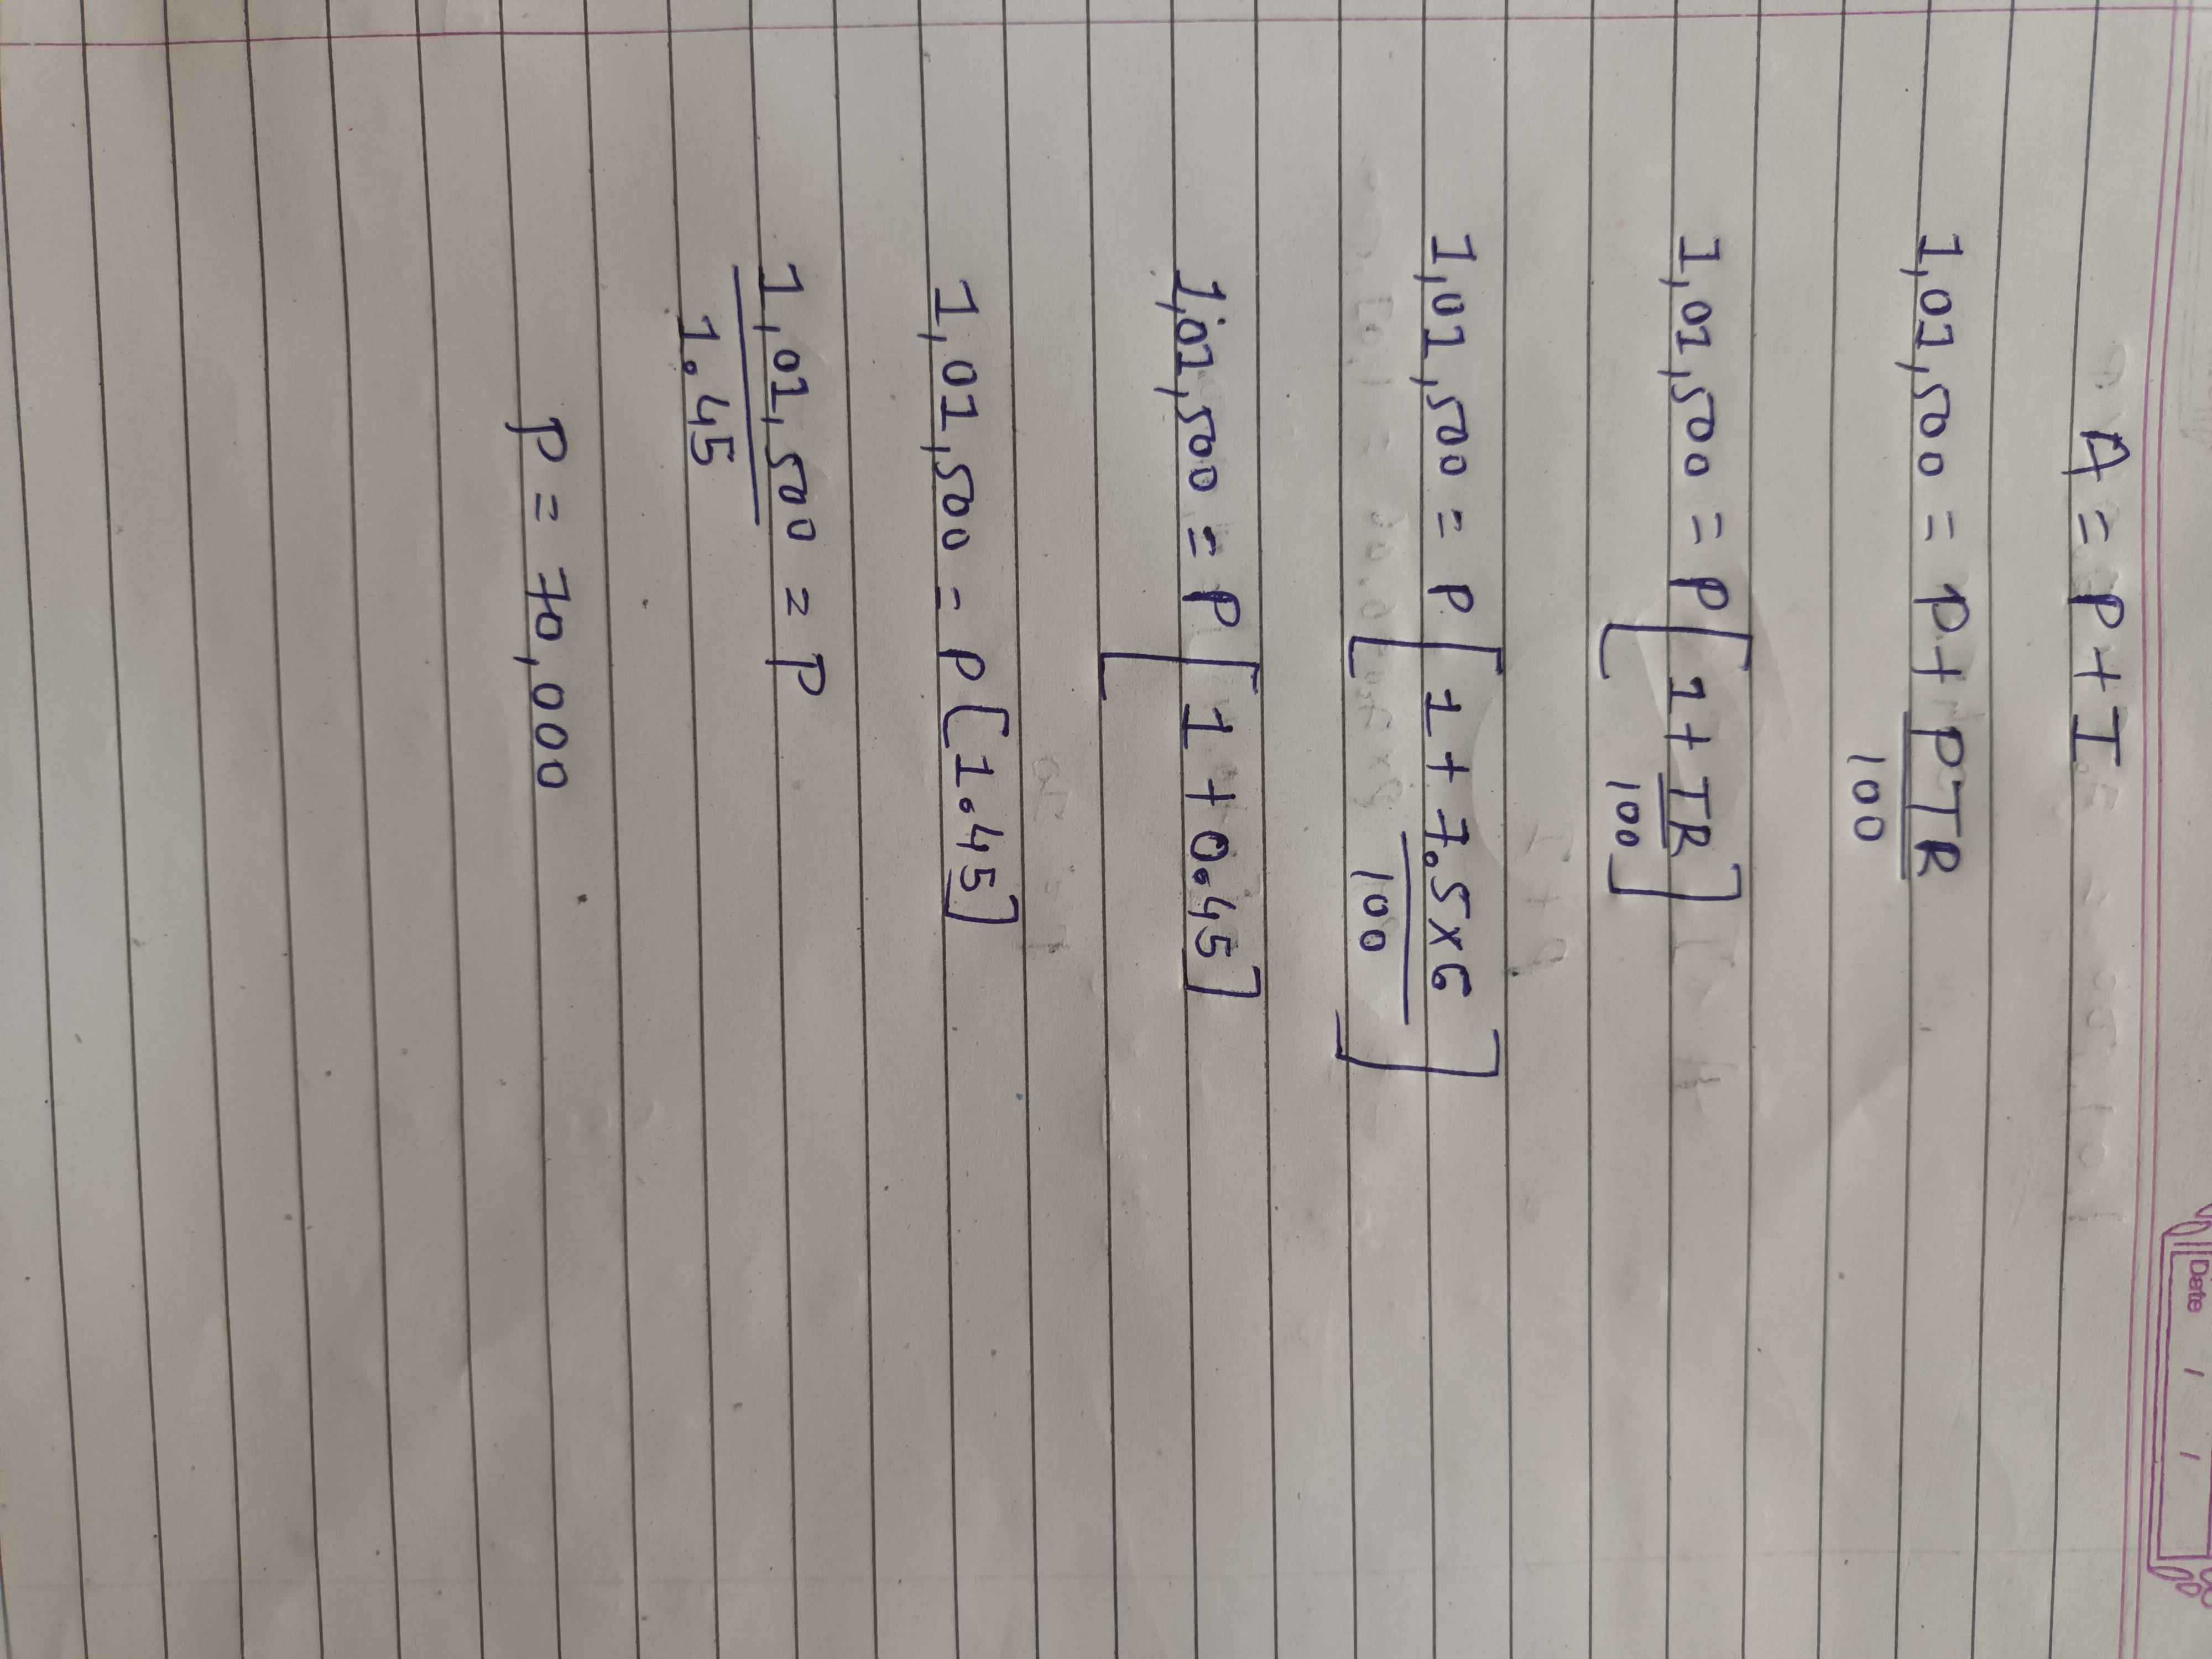 Date / /
A = P + I
1,01,500 = P + PTR
100
1,01,500 = P[1 + TR]
100
1,01,500 = P[1 + 7.5×6]
100
1,01,500 = P[1 + 0.45]
1,01,500 = P[1.45]
1,01,500 = P
1.45
P = 70,000